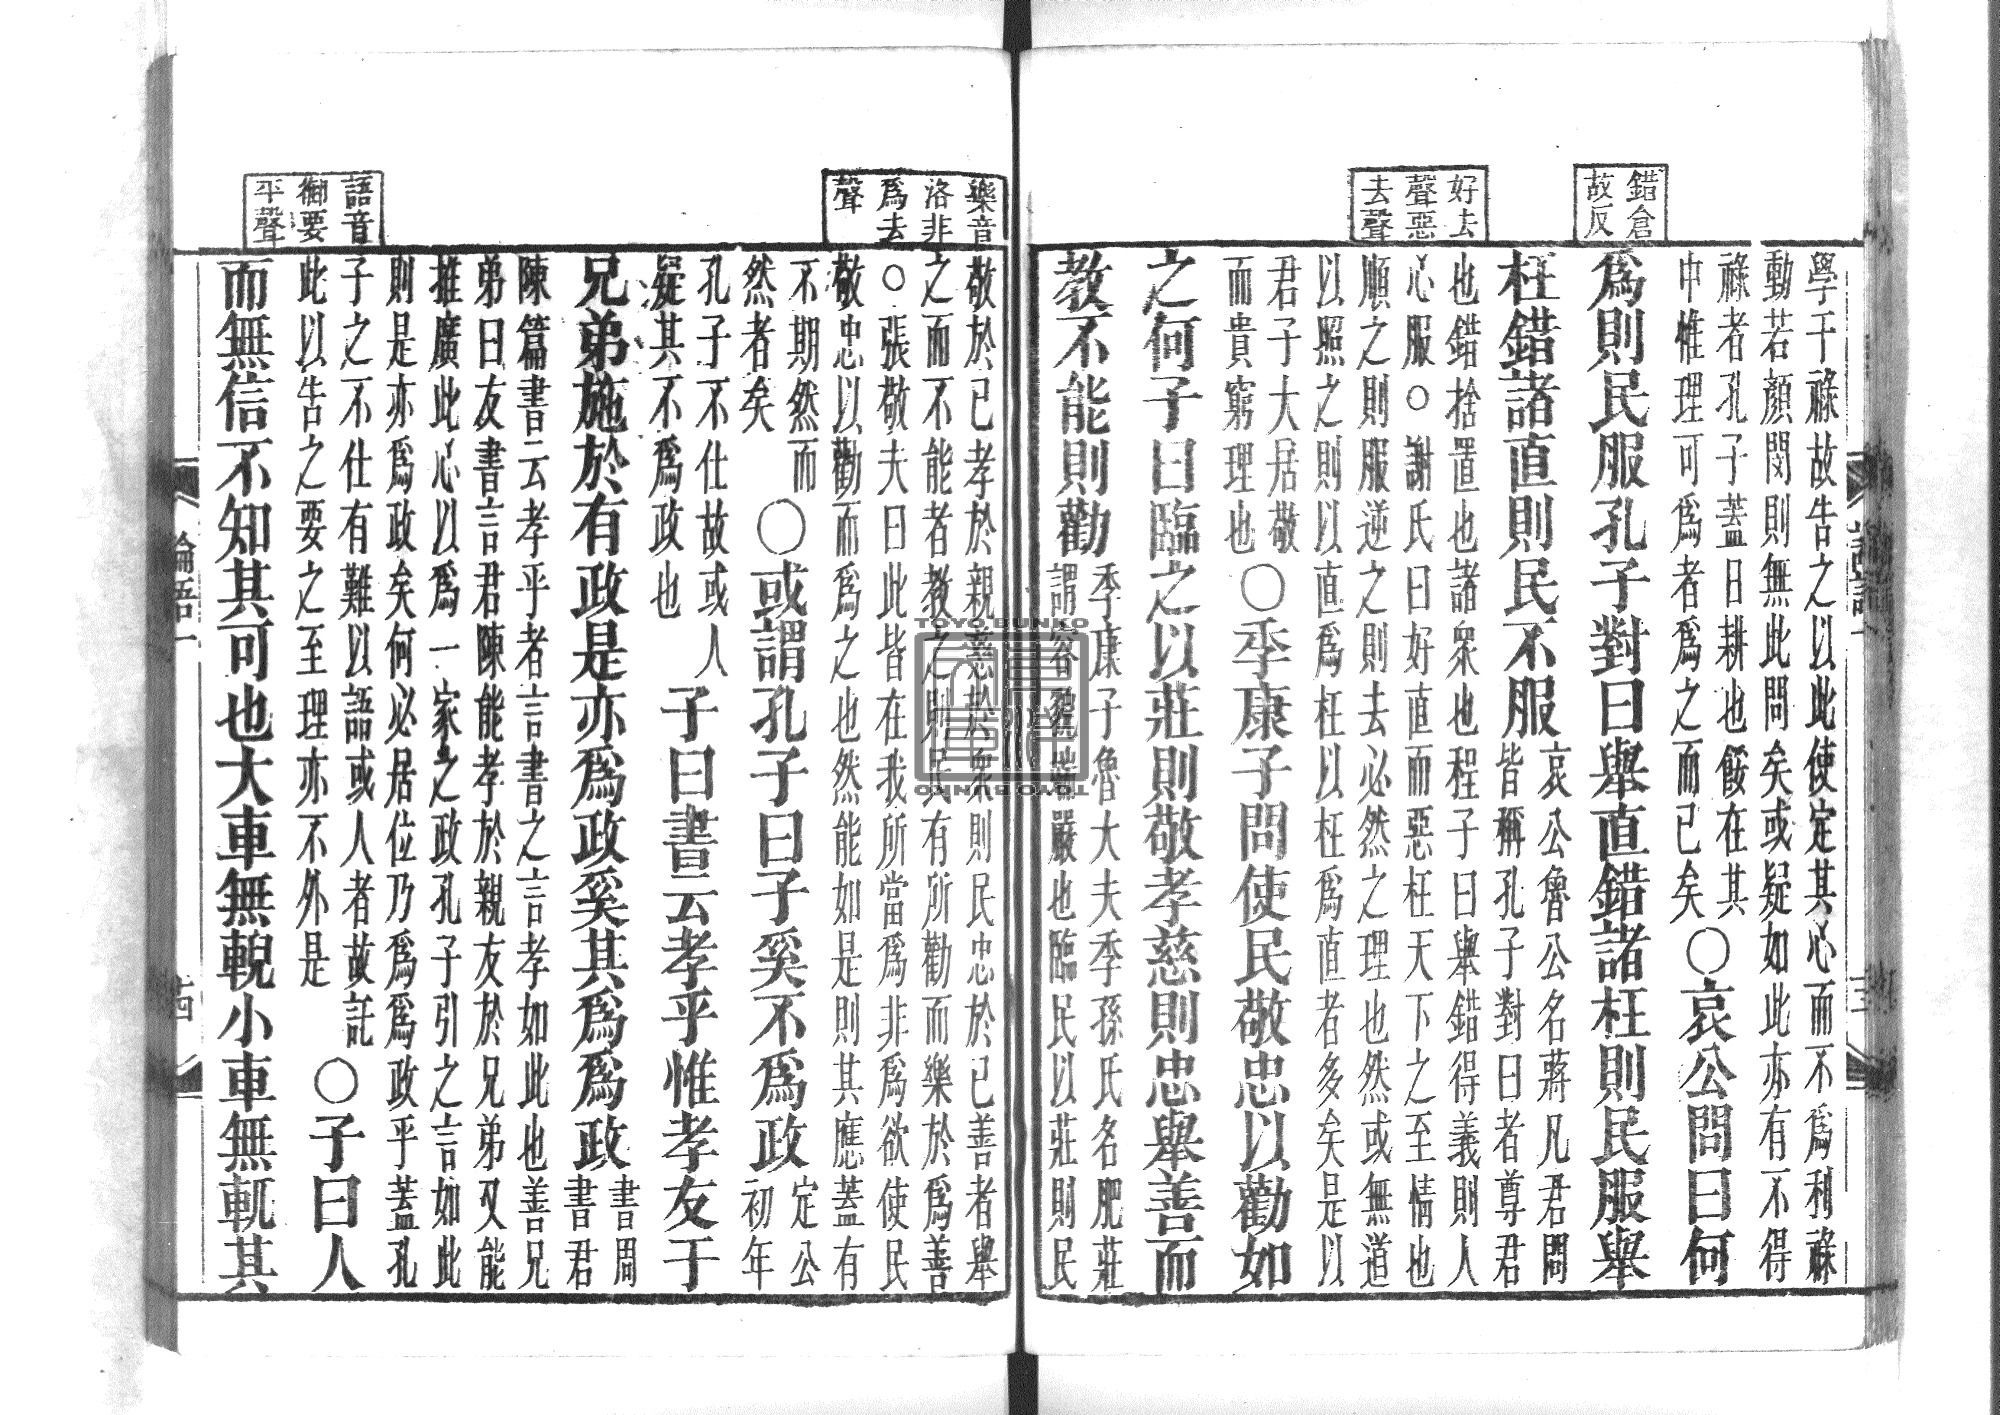 錯倉
故反
好去
聲惡
去聲
學干祿故告之以此使定其心而不爲利祿
動若顏閔則無此問矣或疑如此亦有不得
祿者孔子蓋曰耕也餒在其
中惟理可爲者爲之而已矣
〇哀公問曰何
爲則民服孔子對曰舉直錯諸枉則民服舉
枉錯諸直則民不服
哀公魯公名蔣凡君問
皆稱孔子對曰者尊君
也錯捨置也諸眾也程子曰舉錯得義則人
心服〇謝氏曰好直而惡枉天下之至情也
順之則服逆之則去必然之理也然或無道
以照之則以直爲枉以枉爲直者多矣是以
君子大居敬
而貴窮理也
〇季康子問使民敬忠以勸如
之何子曰臨之以莊則敬孝慈則忠舉善而
教不能則勸
季康子魯大夫季孫氏名肥莊
謂容貌端嚴也臨民以莊則民
樂音
洛非
爲去
聲
語音
御要
平聲
敬於已孝於親慈於眾則民忠於已善者舉
之而不能者教之則民有所勸而樂於爲善
〇張敬夫曰此皆在我所當爲非爲欲使民
敬忠以勸而爲之也然能如是則其應蓋有
不期然而
然者矣
〇或謂孔子曰子奚不爲政
定公
初年
孔子不仕故或人
疑其不爲政也
子曰書云孝乎惟孝友于
兄弟施於有政是亦爲政奚其爲爲政
書周
書君
陳篇書云孝乎者言書之言孝如此也善兄
弟曰友書言君陳能孝於親友於兄弟又能
推廣此心以爲一家之政孔子引之言如此
則是亦爲政矣何必居位乃爲爲政乎蓋孔
子之不仕有難以語或人者故託
此以告之要之至理亦不外是
〇子曰人
而無信不知其可也大車無輗小車無軏其
論語一
十四
TOYO BUNKO
TOYO BUNKO